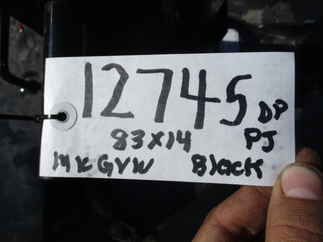 12745 DP
83x14 PJ
14K GVW Black